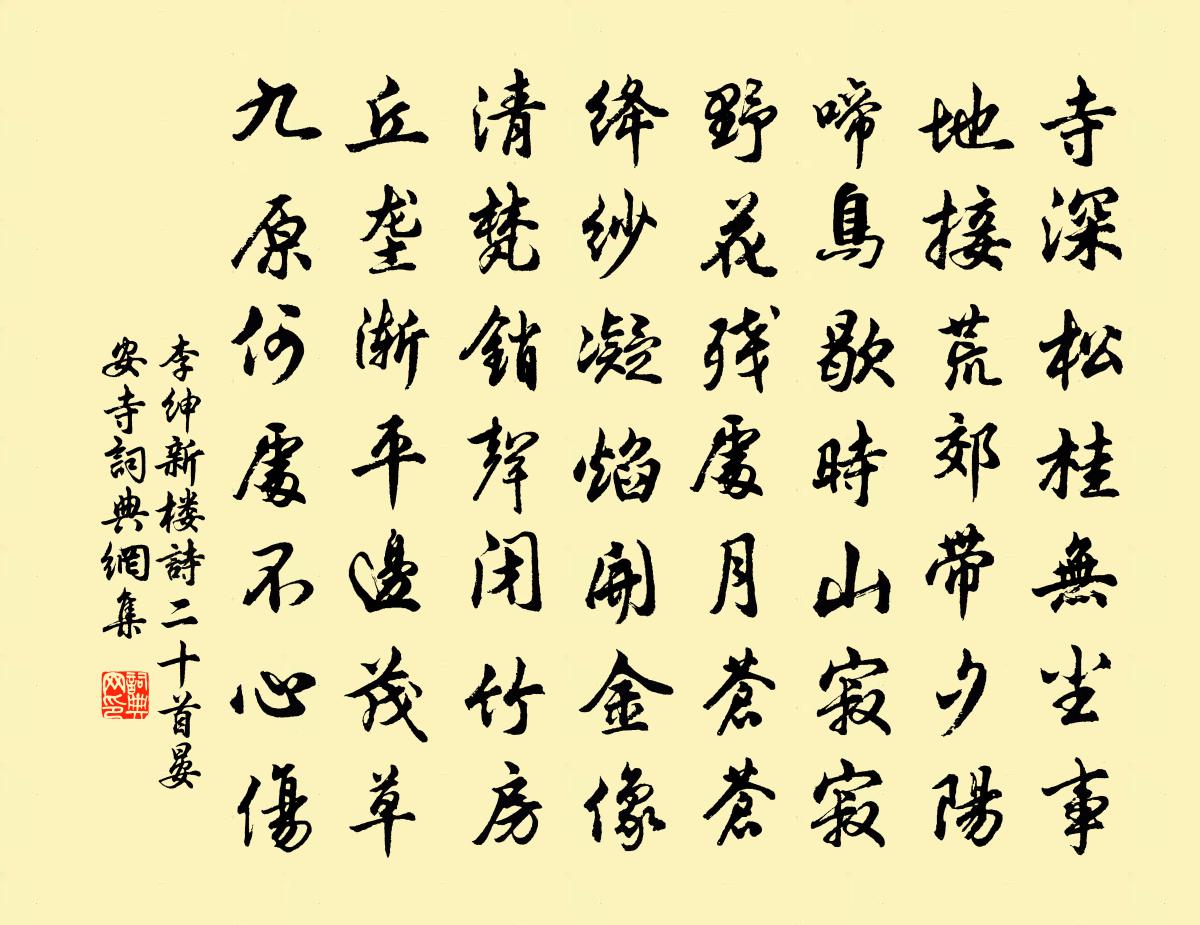 寺深松桂無尘事
地接荒郊带夕陽
啼鳥歇時山寂寂
野花残處月蒼蒼
绛纱凝焰開金像
清梵銷聲閉竹房
丘垄渐平邊茂草
九原何處不心傷
李绅新楼詩二十首晏
安寺詞典網集
詞典网印